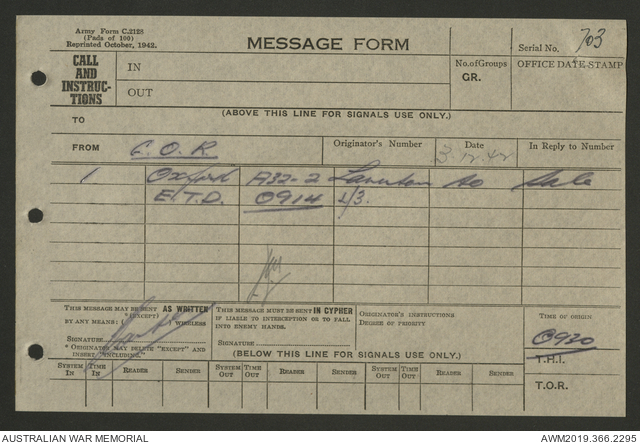 Army Form C.2128
(Pads of 100)
Reprinted October, 1942.
MESSAGE FORM
Serial No. 703
CALL AND INSTRUC- TIONS
IN
OUT
No. of Groups
GR.
OFFICE DATE-STAMP
(ABOVE THIS LINE FOR SIGNALS USE ONLY.)
TO
FROM
Originator's Number
Date
In Reply to Number
3.12.42
1 Oxford A32-2 Laverton to Sale
E.T.D. 0914 L/3.
THIS MESSAGE MAY BE SENT AS WRITTEN
(EXCEPT)
BY ANY MEANS: WIRELESS
SIGNATURE
* ORIGINATOR MAY DELETE "EXCEPT" AND
INSERT "INCLUDING."
THIS MESSAGE MUST BE SENT IN CYPHER
IF LIABLE TO INTERCEPTION OR TO FALL
INTO ENEMY HANDS.
SIGNATURE
ORIGINATOR'S INSTRUCTIONS
DEGREE OF PRIORITY
TIME OF ORIGIN
0920
T.H.I.
T.O.R.
(BELOW THIS LINE FOR SIGNALS USE ONLY.)
SYSTEM IN TIME IN READER SENDER SYSTEM OUT TIME OUT READER SENDER SYSTEM OUT TIME OUT READER SENDER
AUSTRALIAN WAR MEMORIAL
AWM2019.366.2295